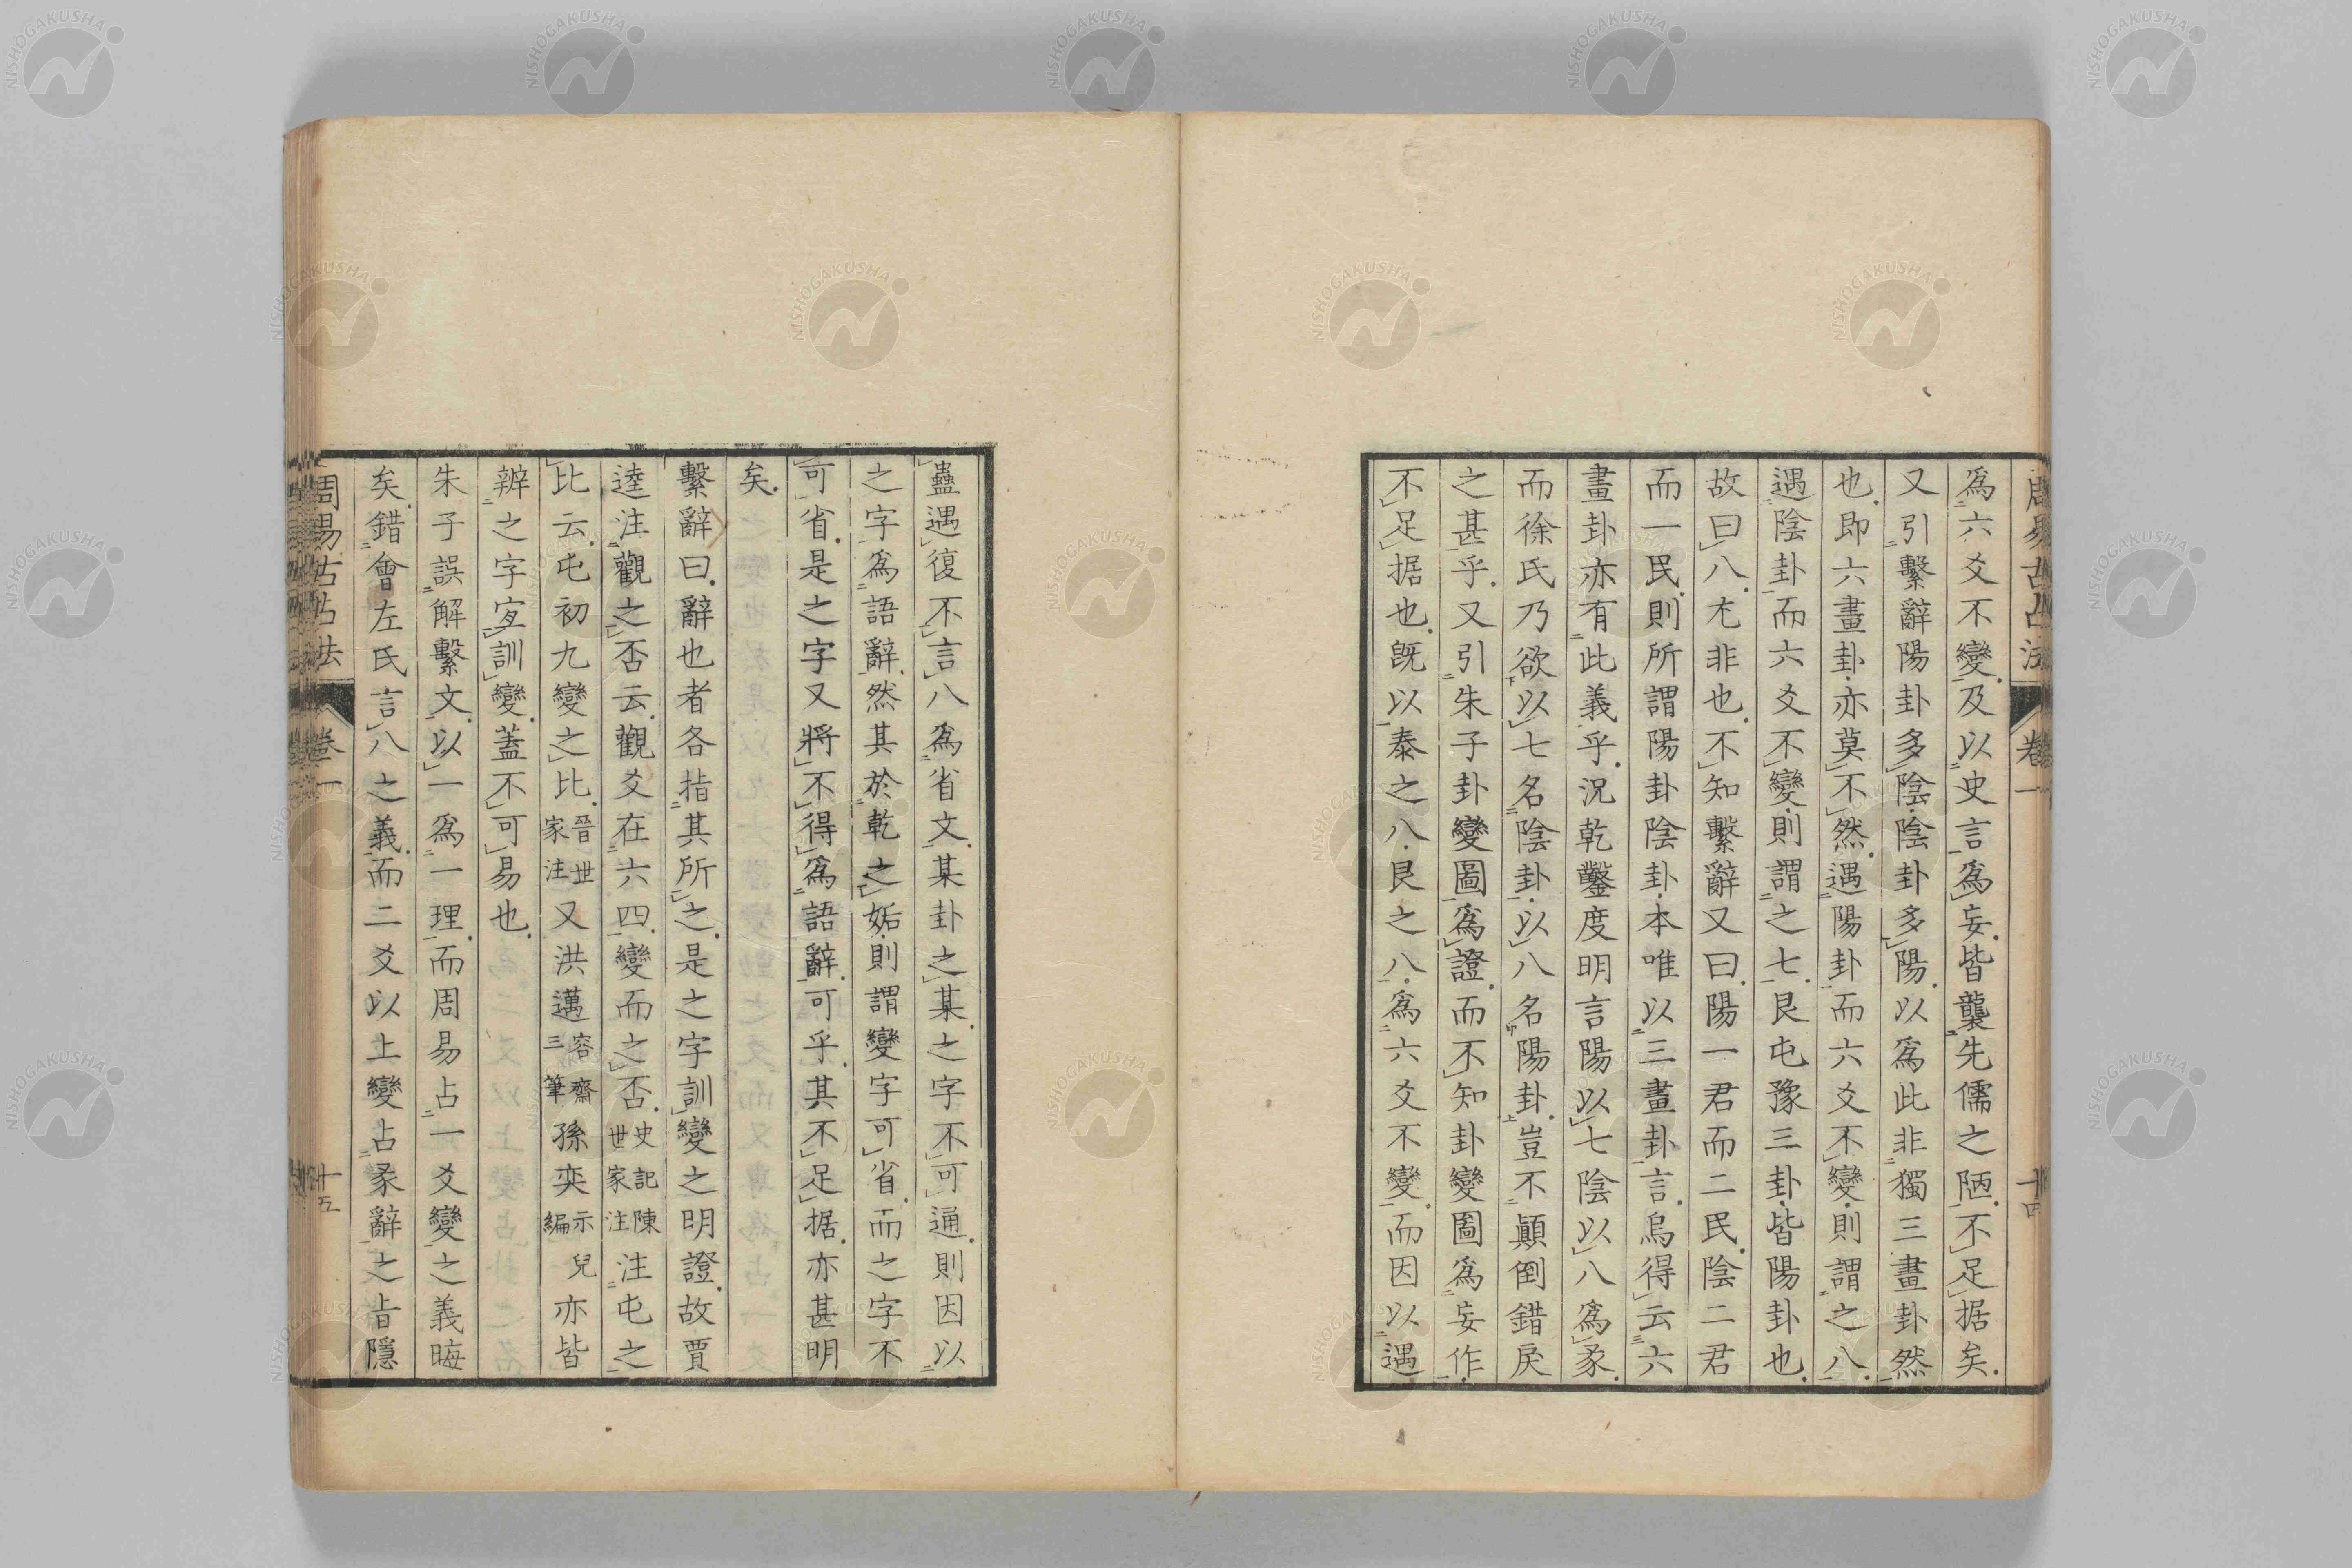 周易古占法 卷一 十四
爲六爻不變及以史言爲妄皆襲先儒之陋不足据矣
又引繫辭陽卦多陰陰卦多陽以爲此非獨三畫卦然
也即六畫卦亦莫不然遇陽卦而六爻不變則謂之八
遇陰卦而六爻不變則謂之七艮屯豫三卦皆陽卦也
故曰八尤非也不知繫辭又曰陽一君而二民陰二君
而一民則所謂陽卦陰卦本唯以三畫卦言烏得云六
畫卦亦有此義乎況乾鑿度明言陽以七陰以八爲彖
而徐氏乃欲以七名陰卦以八名陽卦豈不顚倒錯戾
之甚乎又引朱子卦變圖爲證而不知卦變圖爲妄作
不足据也既以泰之八艮之八爲六爻不變而因以遇
蠱遇復不言八爲省文某卦之某之字不可通則因以
之字爲語辭然其於乾之姤則謂變字可省而之字不
可省是之字又將不得爲語辭可乎其不足据亦甚明
矣
繫辭曰辭也者各指其所之是之字訓變之明證故賈
逵注觀之否云觀爻在六四變而之否史記陳世家注注屯之
比云屯初九變之比晉世家注又洪邁容齋三筆孫奕示兒編亦皆
辨之字宜訓變蓋不可易也
朱子誤解繫文以一爲一理而周易占一爻變之義晦
矣錯會左氏言八之義而二爻以上變占彖辭之旨隱
周易古占法 卷一 十五